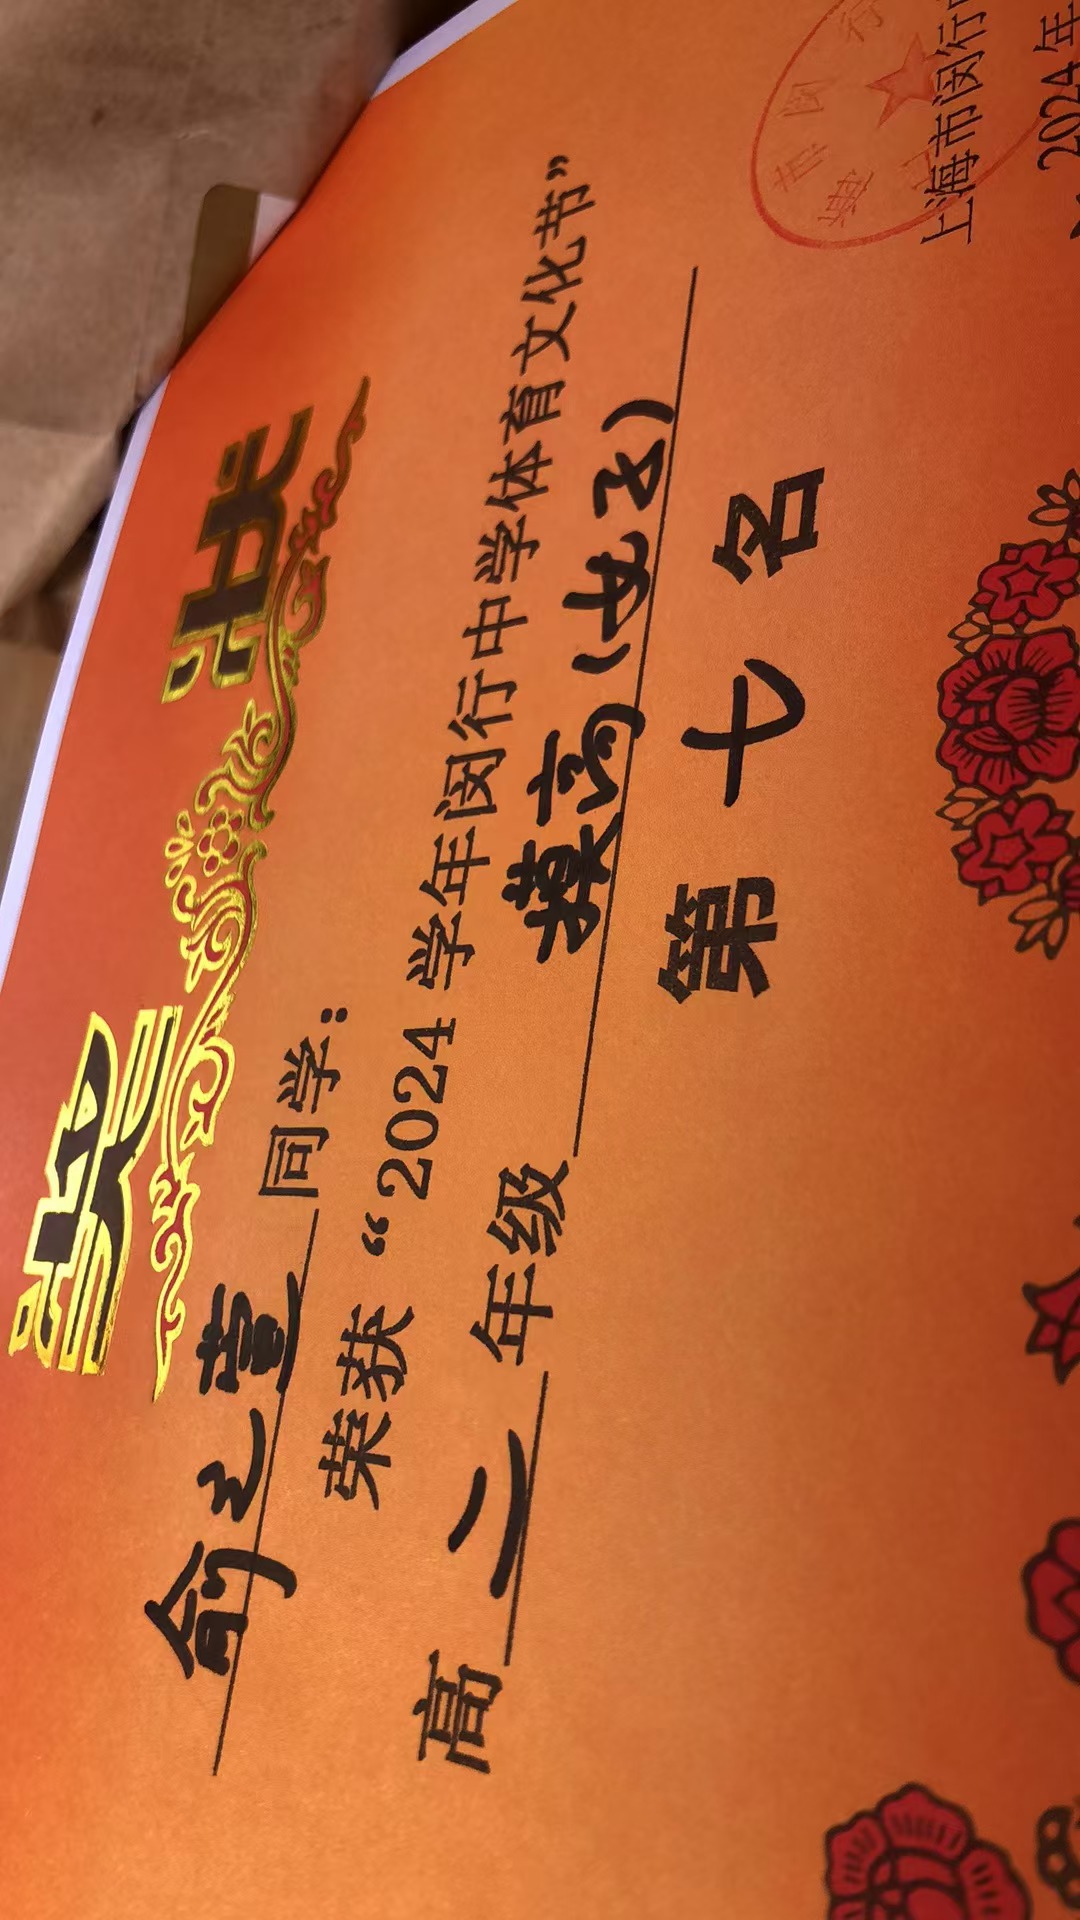 奖状
俞之萱同学：
荣获“2024学年闵行中学体育文化节”
高二年级 摸高(女子)
第七名
上海市闵行
上海市闵行
2024年